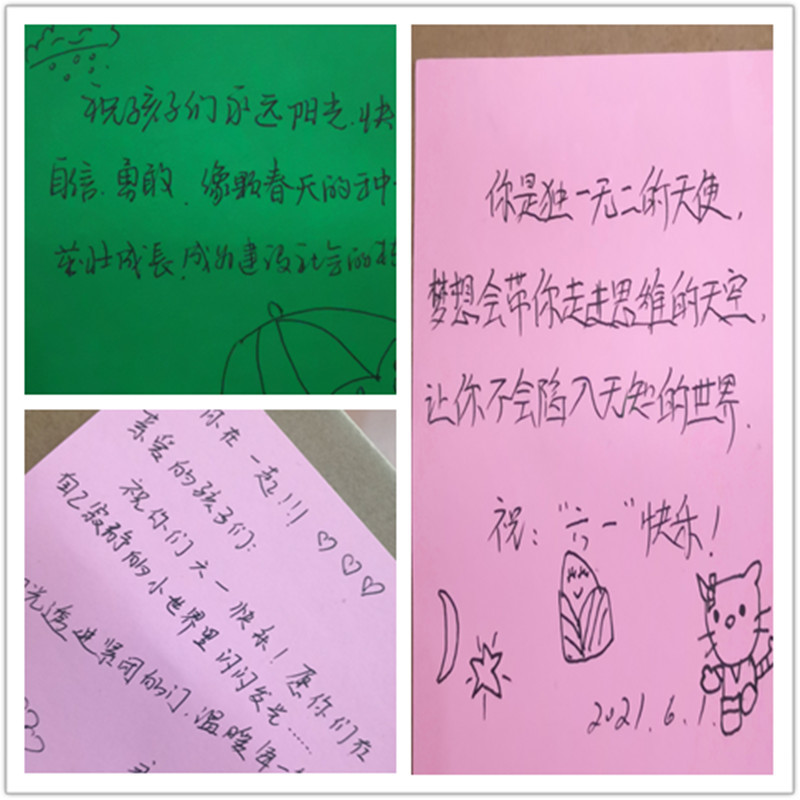 祝孩子们永远阳光.快
自信.勇敢.像颗春天的种
茁壮成長.成为建设社会的
你在一起!!! ♡♡♡
亲爱的孩子们:
祝你们六一快乐!愿你们在
自己寂静的小世界里闪闪发光……
光透进紧闭的门.温暖
你是独一无二的天使,
梦想会带你走进思维的天空,
让你不会陷入无知的世界.
祝:“六一”快乐!
2021.6.1.